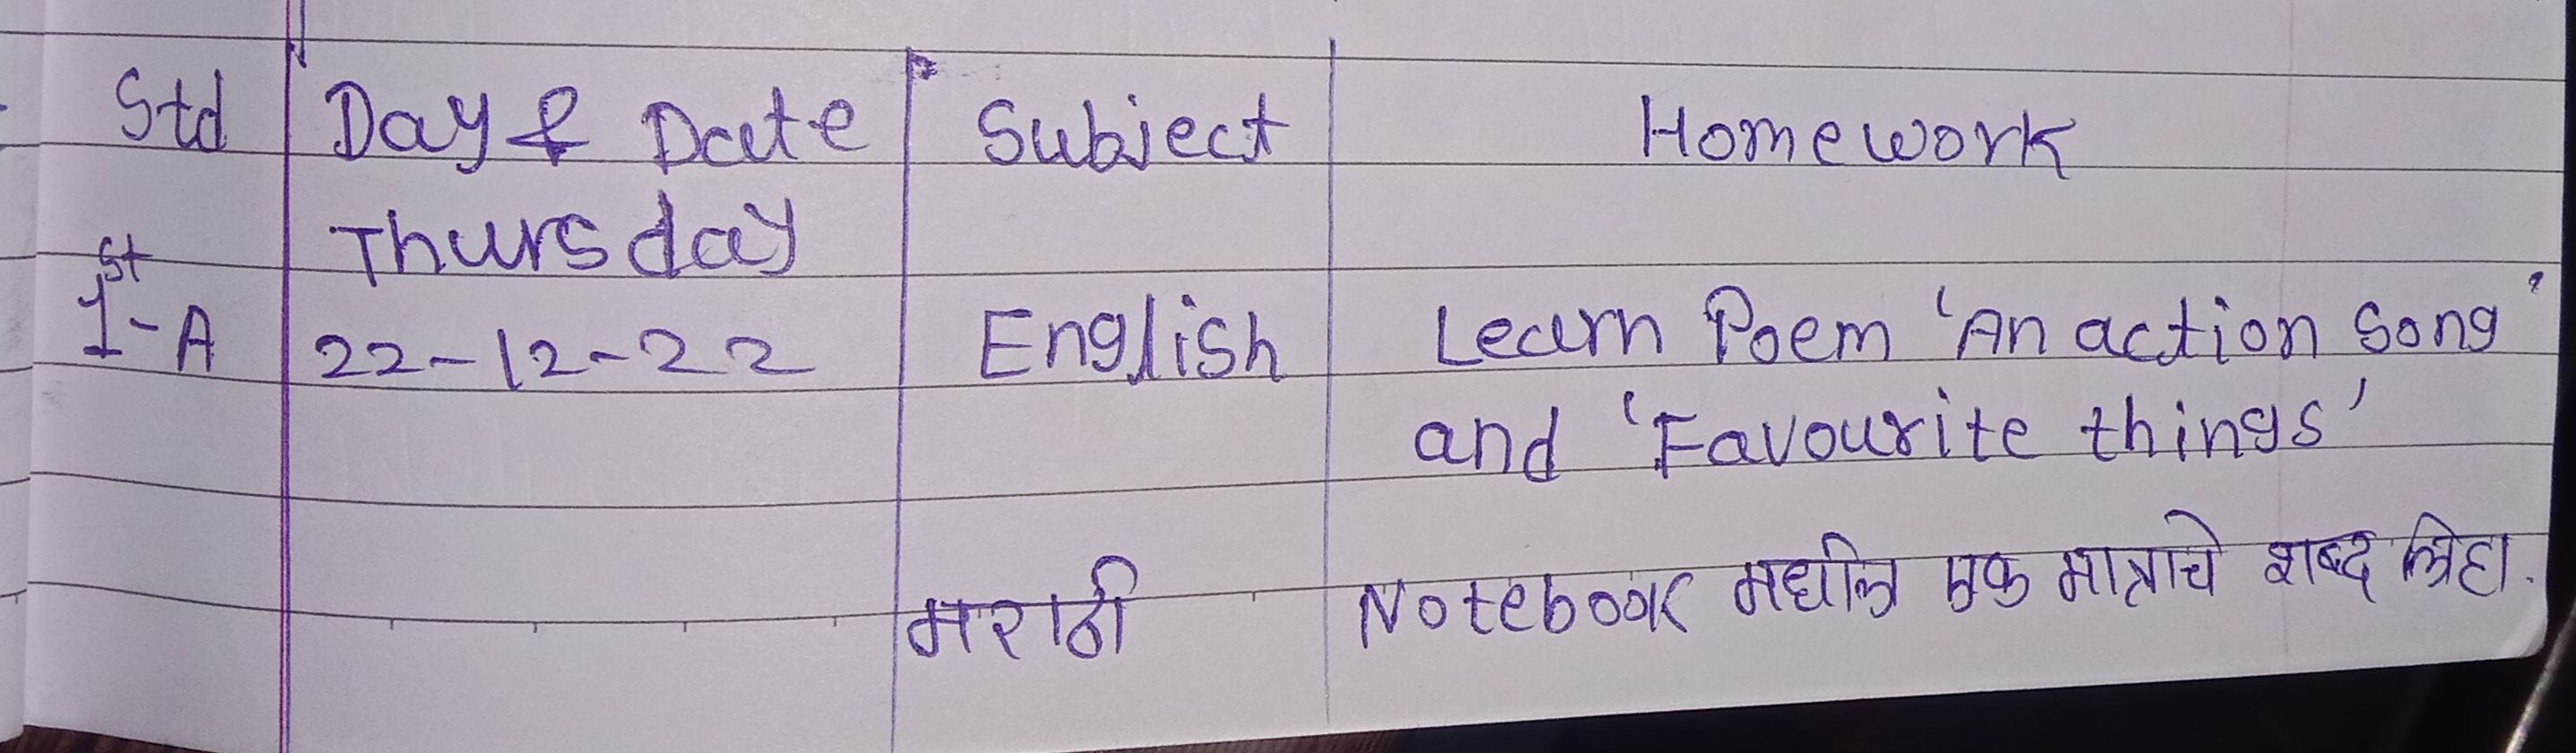 Std Day & Date Subject Homework
Thursday
1st-A 22-12-22 English Learn Poem 'An action song'
and 'Favourite things'
मराठी Notebook मधील एक मात्राचे शब्द लिहा.